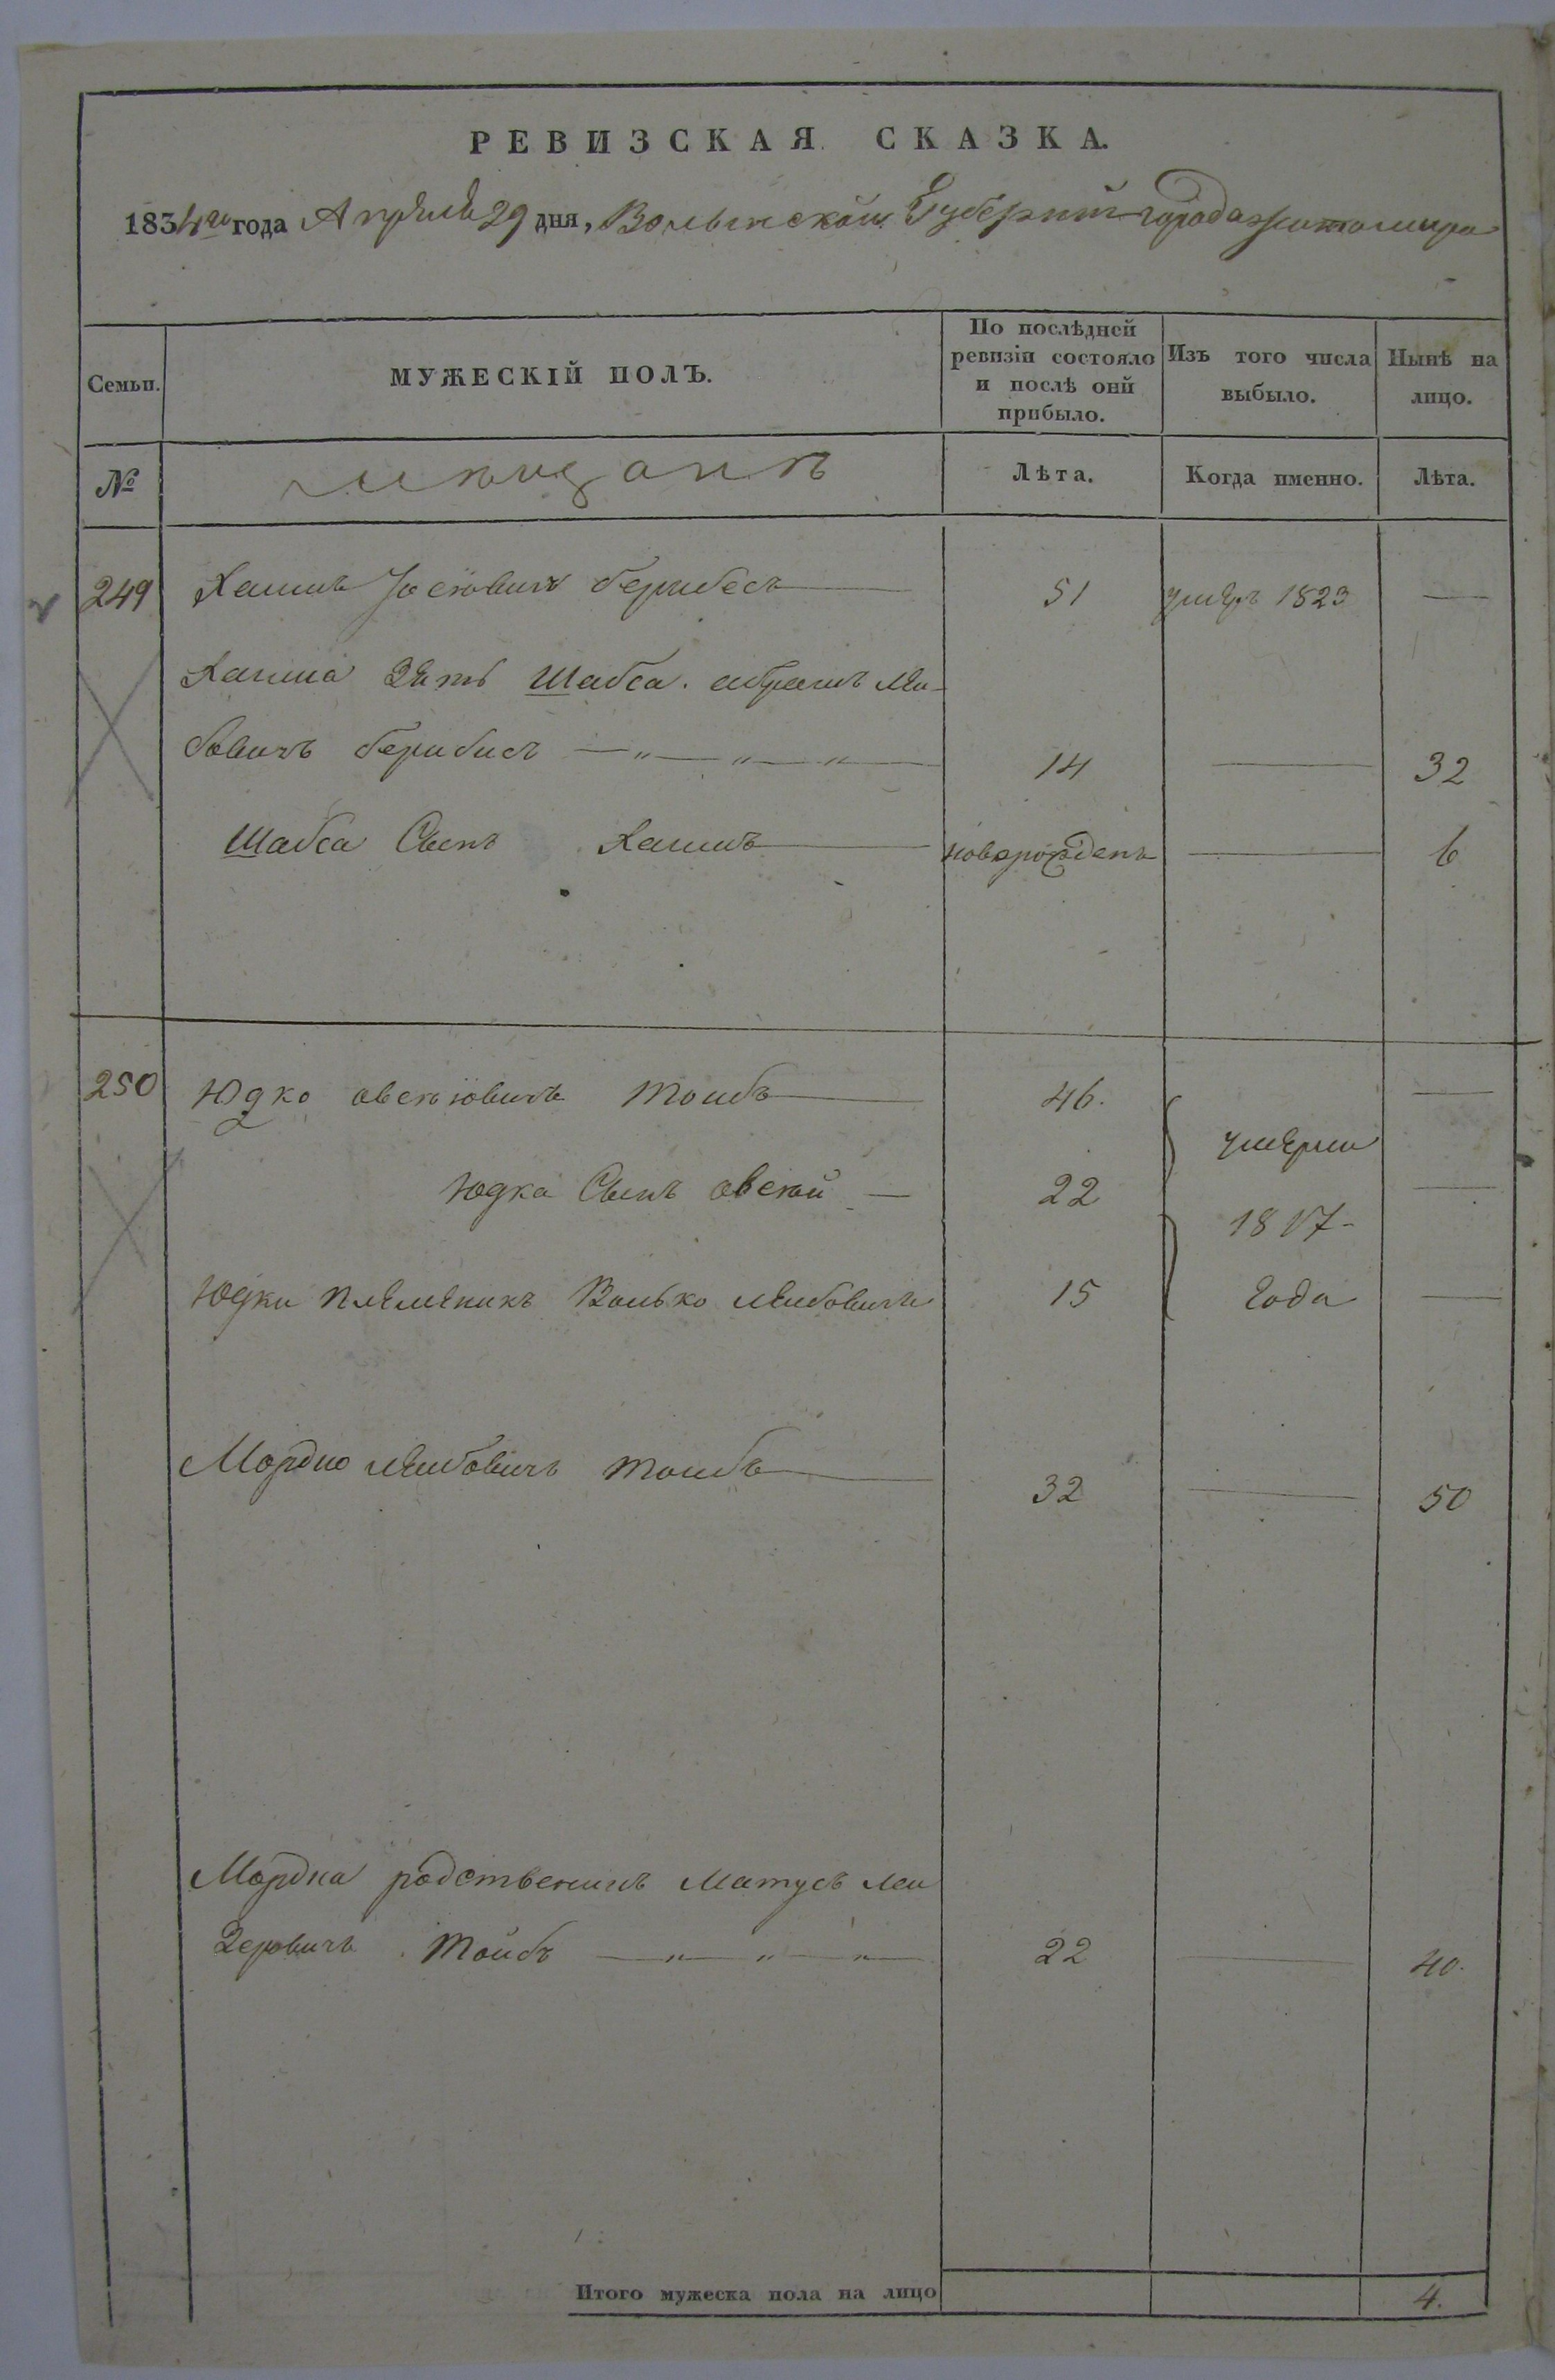 РЕВИЗСКАЯ СКАЗКА.
1834го года Апреля 29 дня, Волынской Губернии города Житомира
Семьи. МУЖЕСКІЙ ПОЛЪ. По послѣдней ревизіи состояло и послѣ оной прибыло. Изъ того числа выбыло. Нынѣ на лицо.
№ мещане Лѣта. Когда именно. Лѣта.
249 Хаимъ Іосіовичъ Берибесъ 51 умеръ 1823 —
Хаима Зять Шабса. абрамъ Лей-
бовичъ берибисъ —„—„—„— 14 — 32
Шабса Сынъ Хаимъ новорожденъ — 6
250 Юдко овсеіовичъ Тойбъ 46. —
умерли
Юдка Сынъ овсей — 22 —
1817-
Юдки племеникъ Волько лейбовичъ 15 года —
Мордко лейбовичъ тойбъ 32 — 50
Мордка родственикъ Матусъ Лей
Зеровичъ Тойбъ —„—„—„— 22 — 40.
Итого мужеска пола на лицо 4.